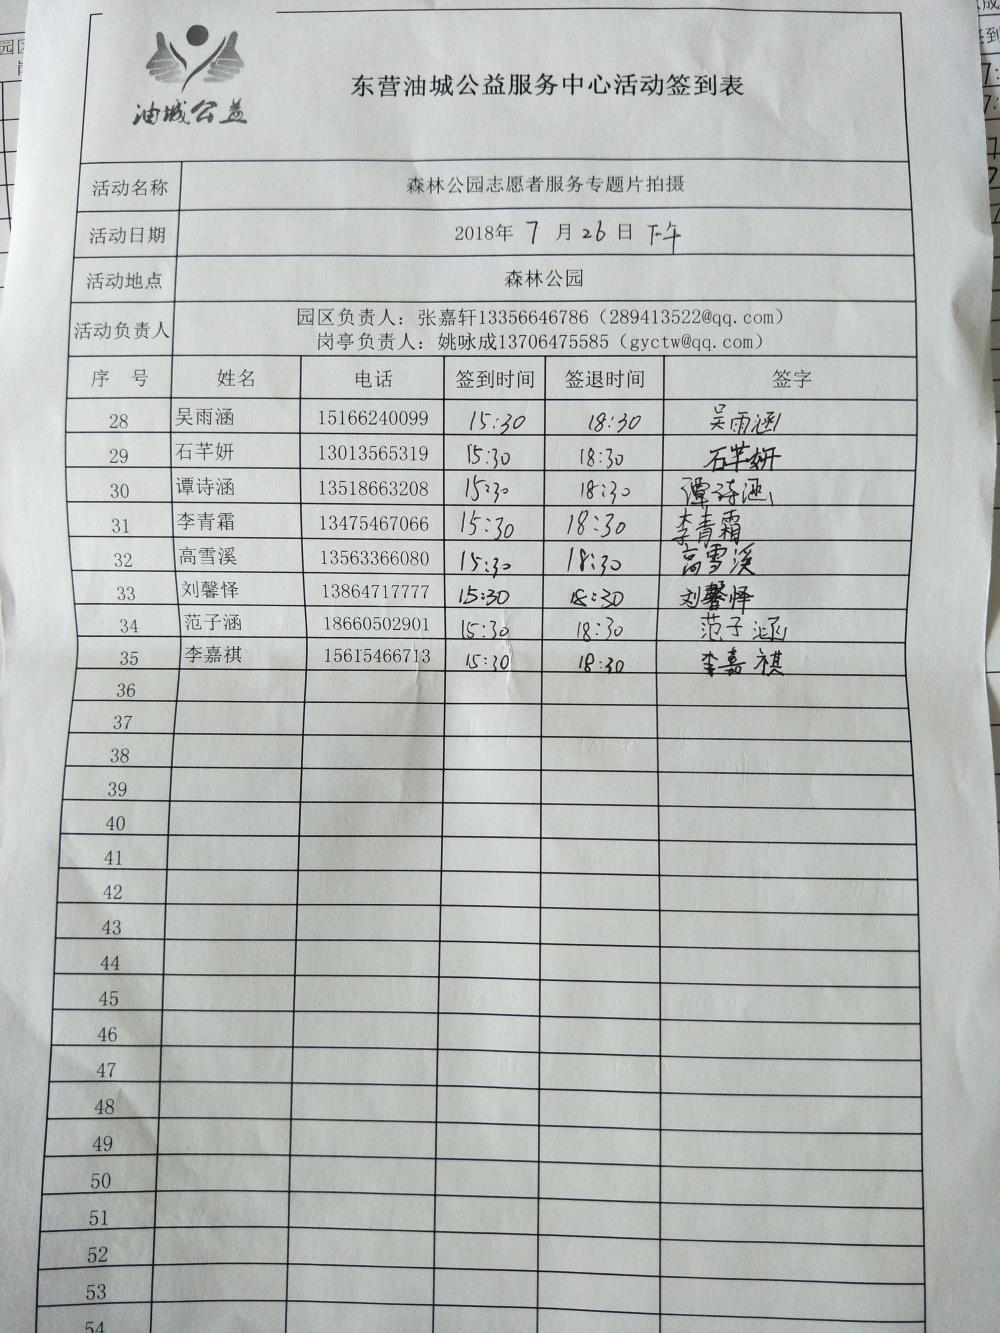 油城公益
东营油城公益服务中心活动签到表
活动名称 森林公园志愿者服务专题片拍摄
活动日期 2018年 7 月 26 日 下午
活动地点 森林公园
活动负责人 园区负责人：张嘉轩13356646786（289413522@qq.com）
岗亭负责人：姚咏成13706475585（gyctw@qq.com）
序 号 姓名 电话 签到时间 签退时间 签字
28 吴雨涵 15166240099 15:30 18:30 吴雨涵
29 石芊妍 13013565319 15:30 18:30 石芊妍
30 谭诗涵 13518663208 15:30 18:30 谭诗涵
31 李青霜 13475467066 15:30 18:30 李青霜
32 高雪溪 13563366080 15:30 18:30 高雪溪
33 刘馨怿 13864717777 15:30 18:30 刘馨怿
34 范子涵 18660502901 15:30 18:30 范子涵
35 李嘉祺 15615466713 15:30 18:30 李嘉祺
36
37
38
39
40
41
42
43
44
45
46
47
48
49
50
51
52
53
54